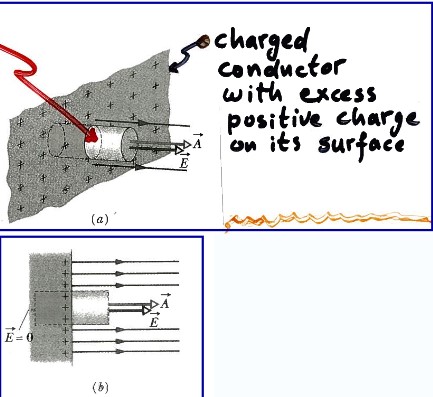 charged
conductor
with excess
positive charge
on its surface
A
E
(a)
A
E
E = 0
(b)